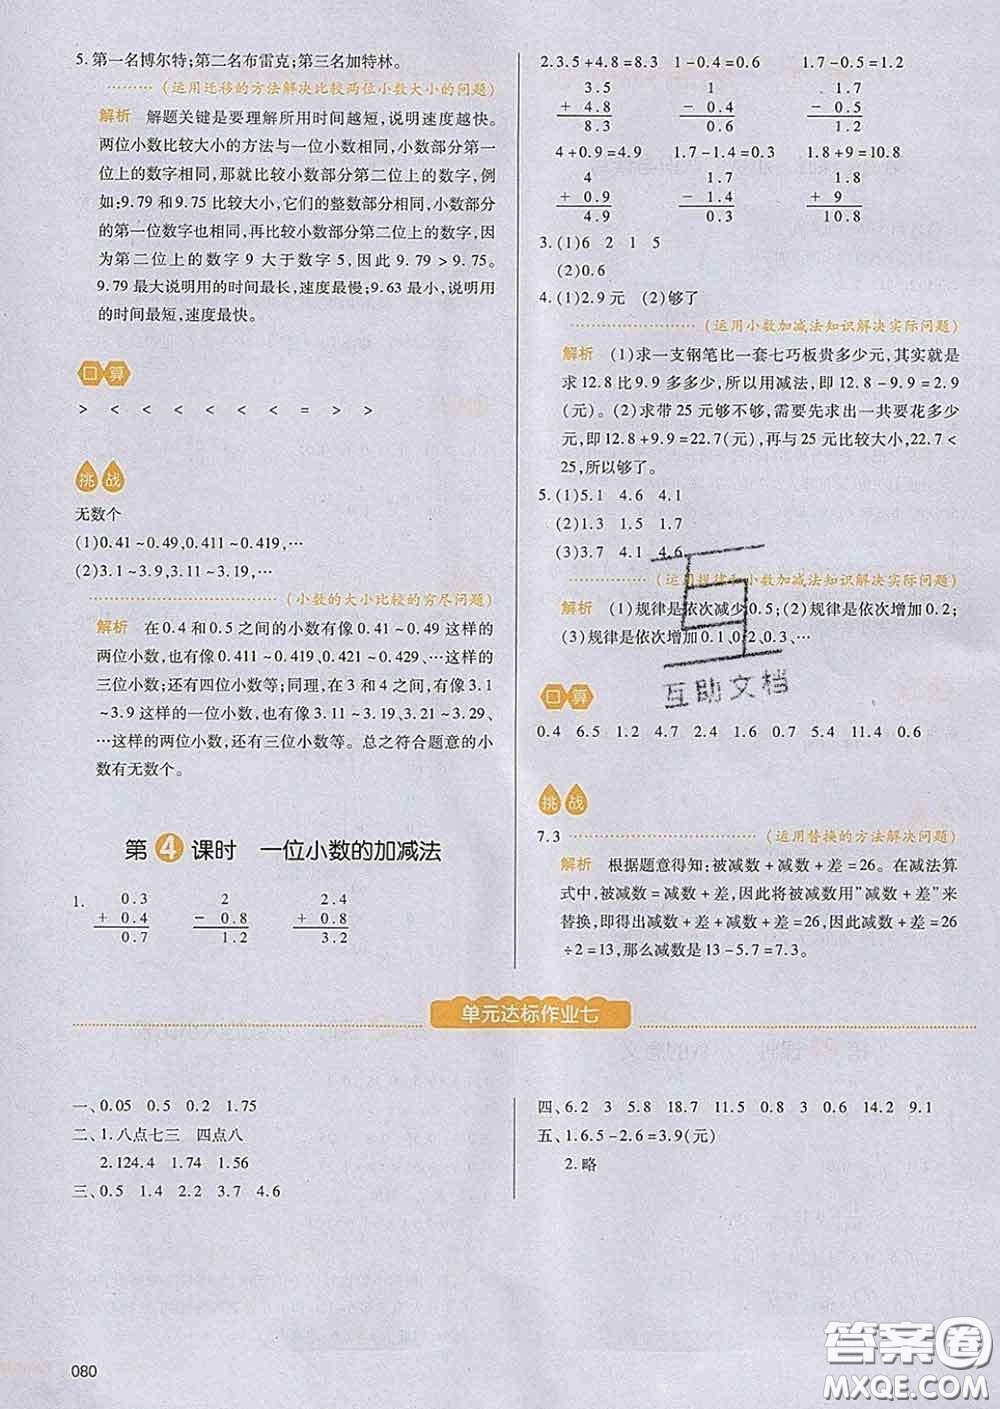 5. 第一名博尔特;第二名布雷克;第三名加特林。
………(运用迁移的方法解决比较两位小数大小的问题)
解析 解题关键是要理解所用时间越短,说明速度越快。
两位小数比较大小的方法与一位小数相同,小数部分第一
位上的数字相同,那就比较小数部分第二位上的数字,例
如;9.79 和 9.75 比较大小,它们的整数部分相同,小数部分
的第一位数字也相同,再比较小数部分第二位上的数字,因
为第二位上的数字 9 大于数字 5,因此 9. 79 > 9. 75。
9.79 最大说明用的时间最长,速度最慢;9.63 最小,说明用
的时间最短,速度最快。
口算
> < < < < < < = > >
挑战
无数个
(1)0.41~0.49,0.411~0.419,…
(2)3.1~3.9,3.11~3.19,…
………(小数的大小比较的穷尽问题)
解析 在 0.4 和 0.5 之间的小数有像 0.41~0.49 这样的
两位小数,也有像 0.411~0.419、0.421~0.429…这样的
三位小数;还有四位小数等;同理,在 3 和 4 之间,有像 3.1
~3.9 这样的一位小数,也有像 3.11~3.19、3.21~3.29、
…这样的两位小数,还有三位小数等。总之符合题意的小
数有无数个。
第4课时 一位小数的加减法
1. 0.3 2 2.4
+ 0.4 - 0.8 + 0.8
0.7 1.2 3.2
2.3.5+4.8=8.3 1-0.4=0.6 1.7-0.5=1.2
3.5 1 1.7
+ 4.8 - 0.4 - 0.5
8.3 0.6 1.2
4+0.9=4.9 1.7-1.4=0.3 1.8+9=10.8
4 1.7 1.8
+ 0.9 - 1.4 + 9
4.9 0.3 10.8
3. (1)6 2 1 5
(2)0.6
4. (1)2.9 元 (2)够了
………(运用小数加减法知识解决实际问题)
解析 (1)求一支钢笔比一套七巧板贵多少元,其实就是
求 12.8 比 9.9 多多少,所以用减法,即 12.8-9.9=2.9
(元)。(2)求带 25 元够不够,需要先求出一共要花多少
元,即 12.8+9.9=22.7(元),再与 25 元比较大小,22.7<
25,所以够了。
5. (1)5.1 4.6 4.1
(2)1.3 1.5 1.7
(3)3.7 4.1 4.6
………(运用规律和小数加减法知识解决实际问题)
解析 (1)规律是依次减少 0.5;(2)规律是依次增加 0.2;
(3)规律是依次增加 0.1、0.2、0.3、…
互助文档
口算
0.4 6.5 1.2 4.7 2.4 1.6 0.7 5.4 11.4 0.6
挑战
7.3………(运用替换的方法解决问题)
解析 根据题意得知:被减数+减数+差=26。在减法算
式中,被减数=减数+差,因此将被减数用“减数+差”来
替换,即得出减数+差+减数+差=26,因此减数+差=26
÷2=13,那么减数是 13-5.7=7.3。
单元达标作业七
一、0.05 0.5 0.2 1.75
二、1.八点七三 四点八
2.124.4 1.74 1.56
三、0.5 1.4 2.2 3.7 4.6
四、6.2 3 5.8 18.7 11.5 0.8 3 0.6 14.2 9.1
五、1.6.5-2.6=3.9(元)
2.略
080
答案圈
MXQE.COM